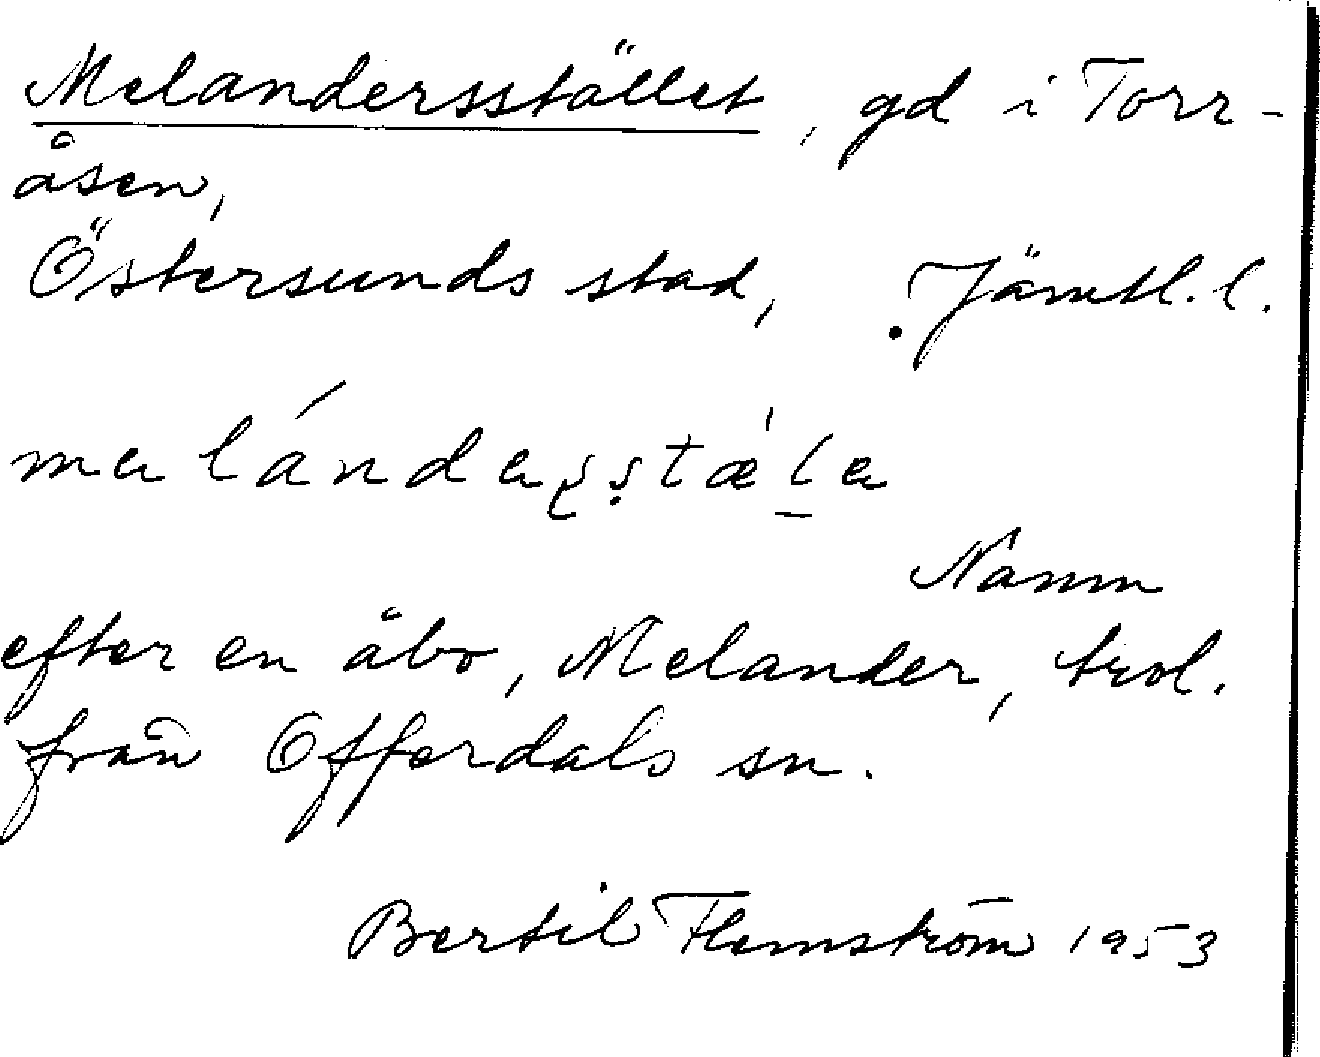 Melandersstället, gd i Torr-
åsen,
Östersunds stad, Jämtl. l.
Namn
efter en åbo, Melander, trol.
från Offerdals sn.
Bertil Flemström 1953